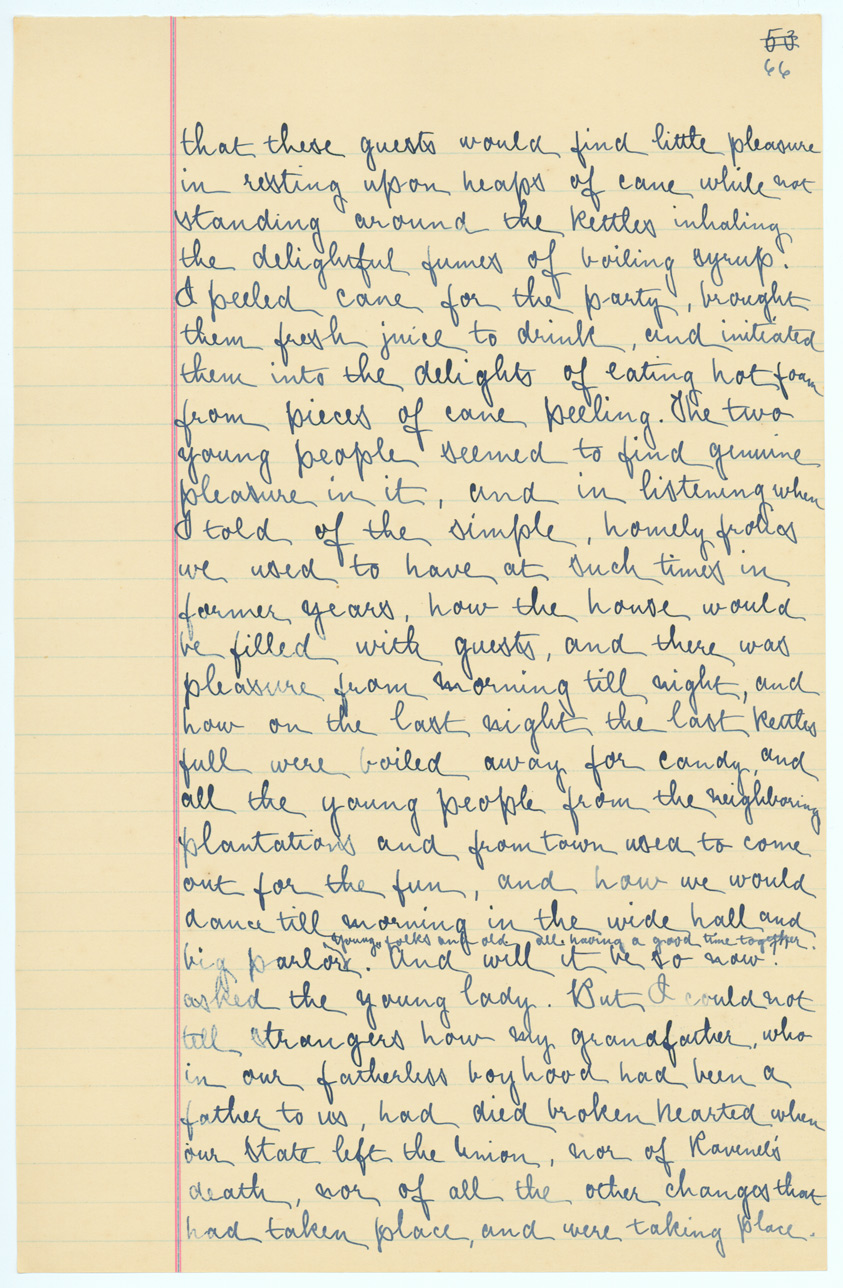 53
66
that these guests would find little pleasure
in resting upon heaps of cane while not
standing around the kettles inhaling
the delightful fumes of boiling syrup.
I peeled cane for the party, brought
them fresh juice to drink, and initiated
them into the delights of eating hot foam
from pieces of cane peeling. The two
young people seemed to find genuine
pleasure in it, and in listening when
I told of the simple, homely frolics
we used to have at such times in
former years, how the house would
be filled with guests, and there was
pleasure from morning till night, and
how on the last night the last kettles
full were boiled away for candy, and
all the young people from the neighboring
plantations and from town used to come
out for the fun, and how we would
dance till morning in the wide hall and
young folks and old all having a good time together.
big parlor. And will it be so now?
asked the young lady. But I could not
tell strangers how my grandfather, who
in our fatherless boyhood had been a
father to us, had died broken hearted when
our State left the Union, nor of Ravenel's
death, nor of all the other changes that
had taken place, and were taking place.